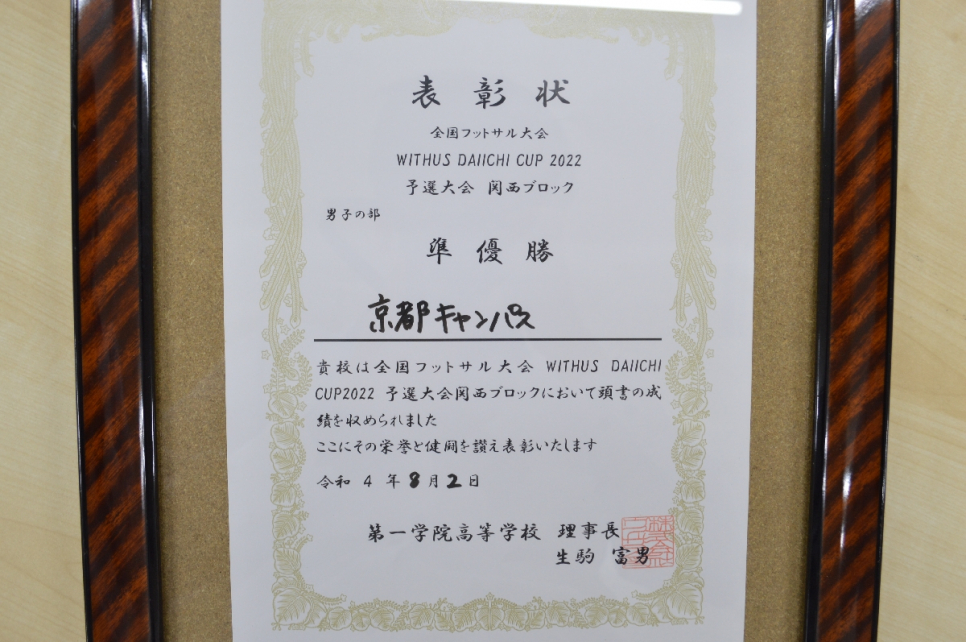 表彰状
全国フットサル大会
WITHUS DAIICHI CUP 2022
予選大会 関西ブロック
男子の部
準優勝
京都キャンパス
貴校は全国フットサル大会 WITHUS DAIICHI
CUP2022 予選大会関西ブロックにおいて頭書の成
績を収められました
ここにその栄誉と健闘を讃え表彰いたします
令和 4 年 8月 2 日
第一学院高等学校 理事長
生駒 富男